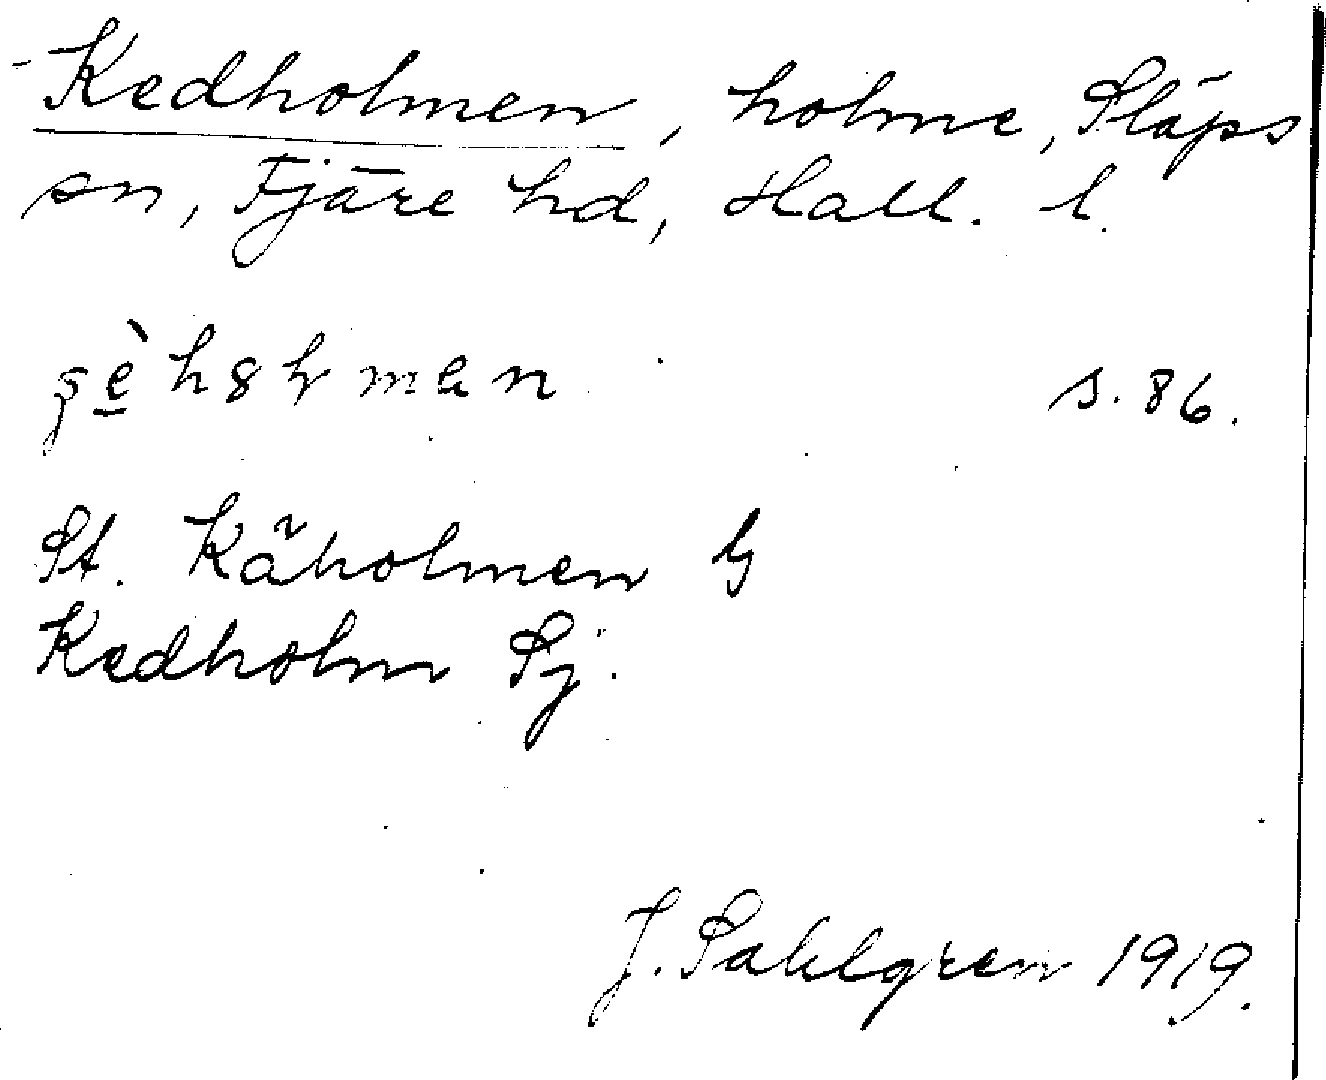 Kedholmen, holme, Släps
sn, Fjäre hd, Hall. l.
s. 86.
St. Käholmen G
Kedholm Sj.
J. Sahlgren 1919.